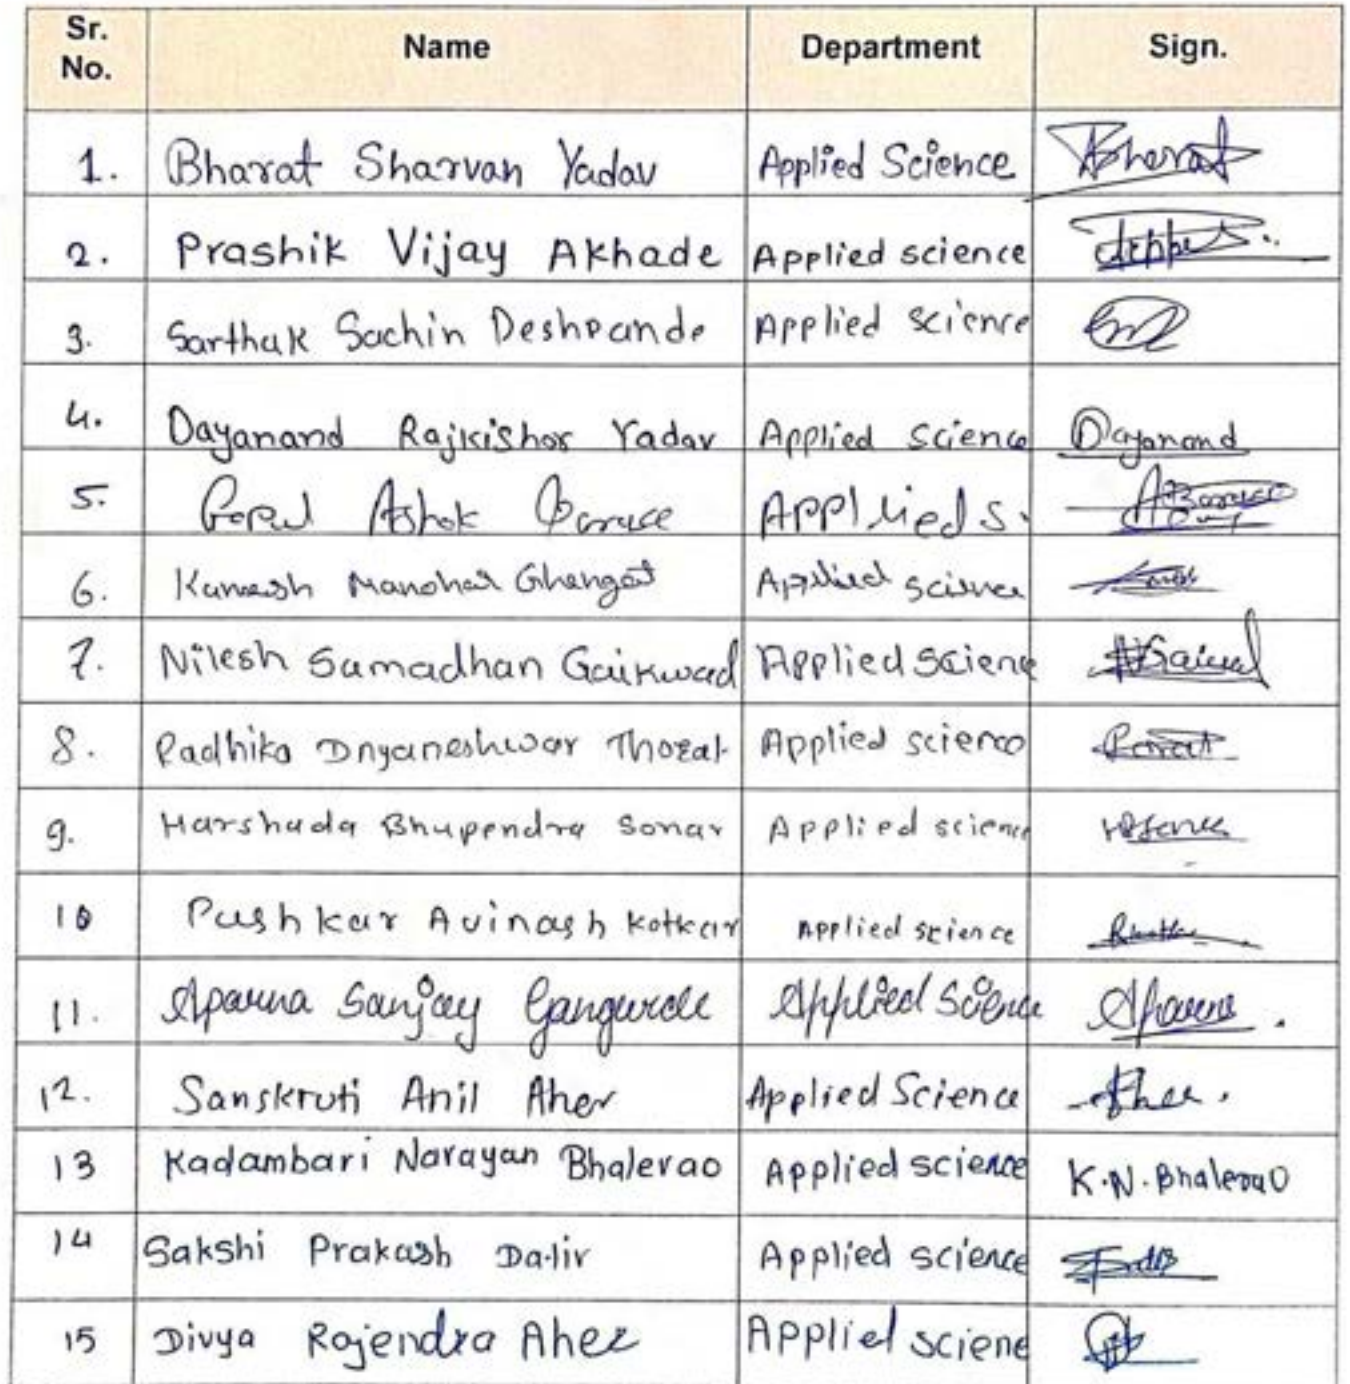 Sr. No. Name Department Sign.
1. Bharat Sharvan Yadav Applied Science Bharat
2. Prashik Vijay Akhade Applied science
3. Sarthak Sachin Deshpande Applied science
4. Dayanand Rajkishor Yadav Applied science Dayanand
5. Ashok Applied s.
6. Manohar Ghangat Applied science
7. Nilesh Samadhan Gaikwad Applied scienc
8. Radhika Dnyaneshwar Thorat Applied science
9. Harshada Bhupendra Sonar Applied science
10 Pushkar Avinash Kotkar Applied science
11. Aparna Sanjay Gangurde Applied Science Aparna
12. Sanskruti Anil Aher Applied Science Aher.
13 Kadambari Narayan Bhalerao Applied science K.N.Bhalerao
14 Sakshi Prakash Daliv Applied science
15 Divya Rajendra Aher Applied sciene